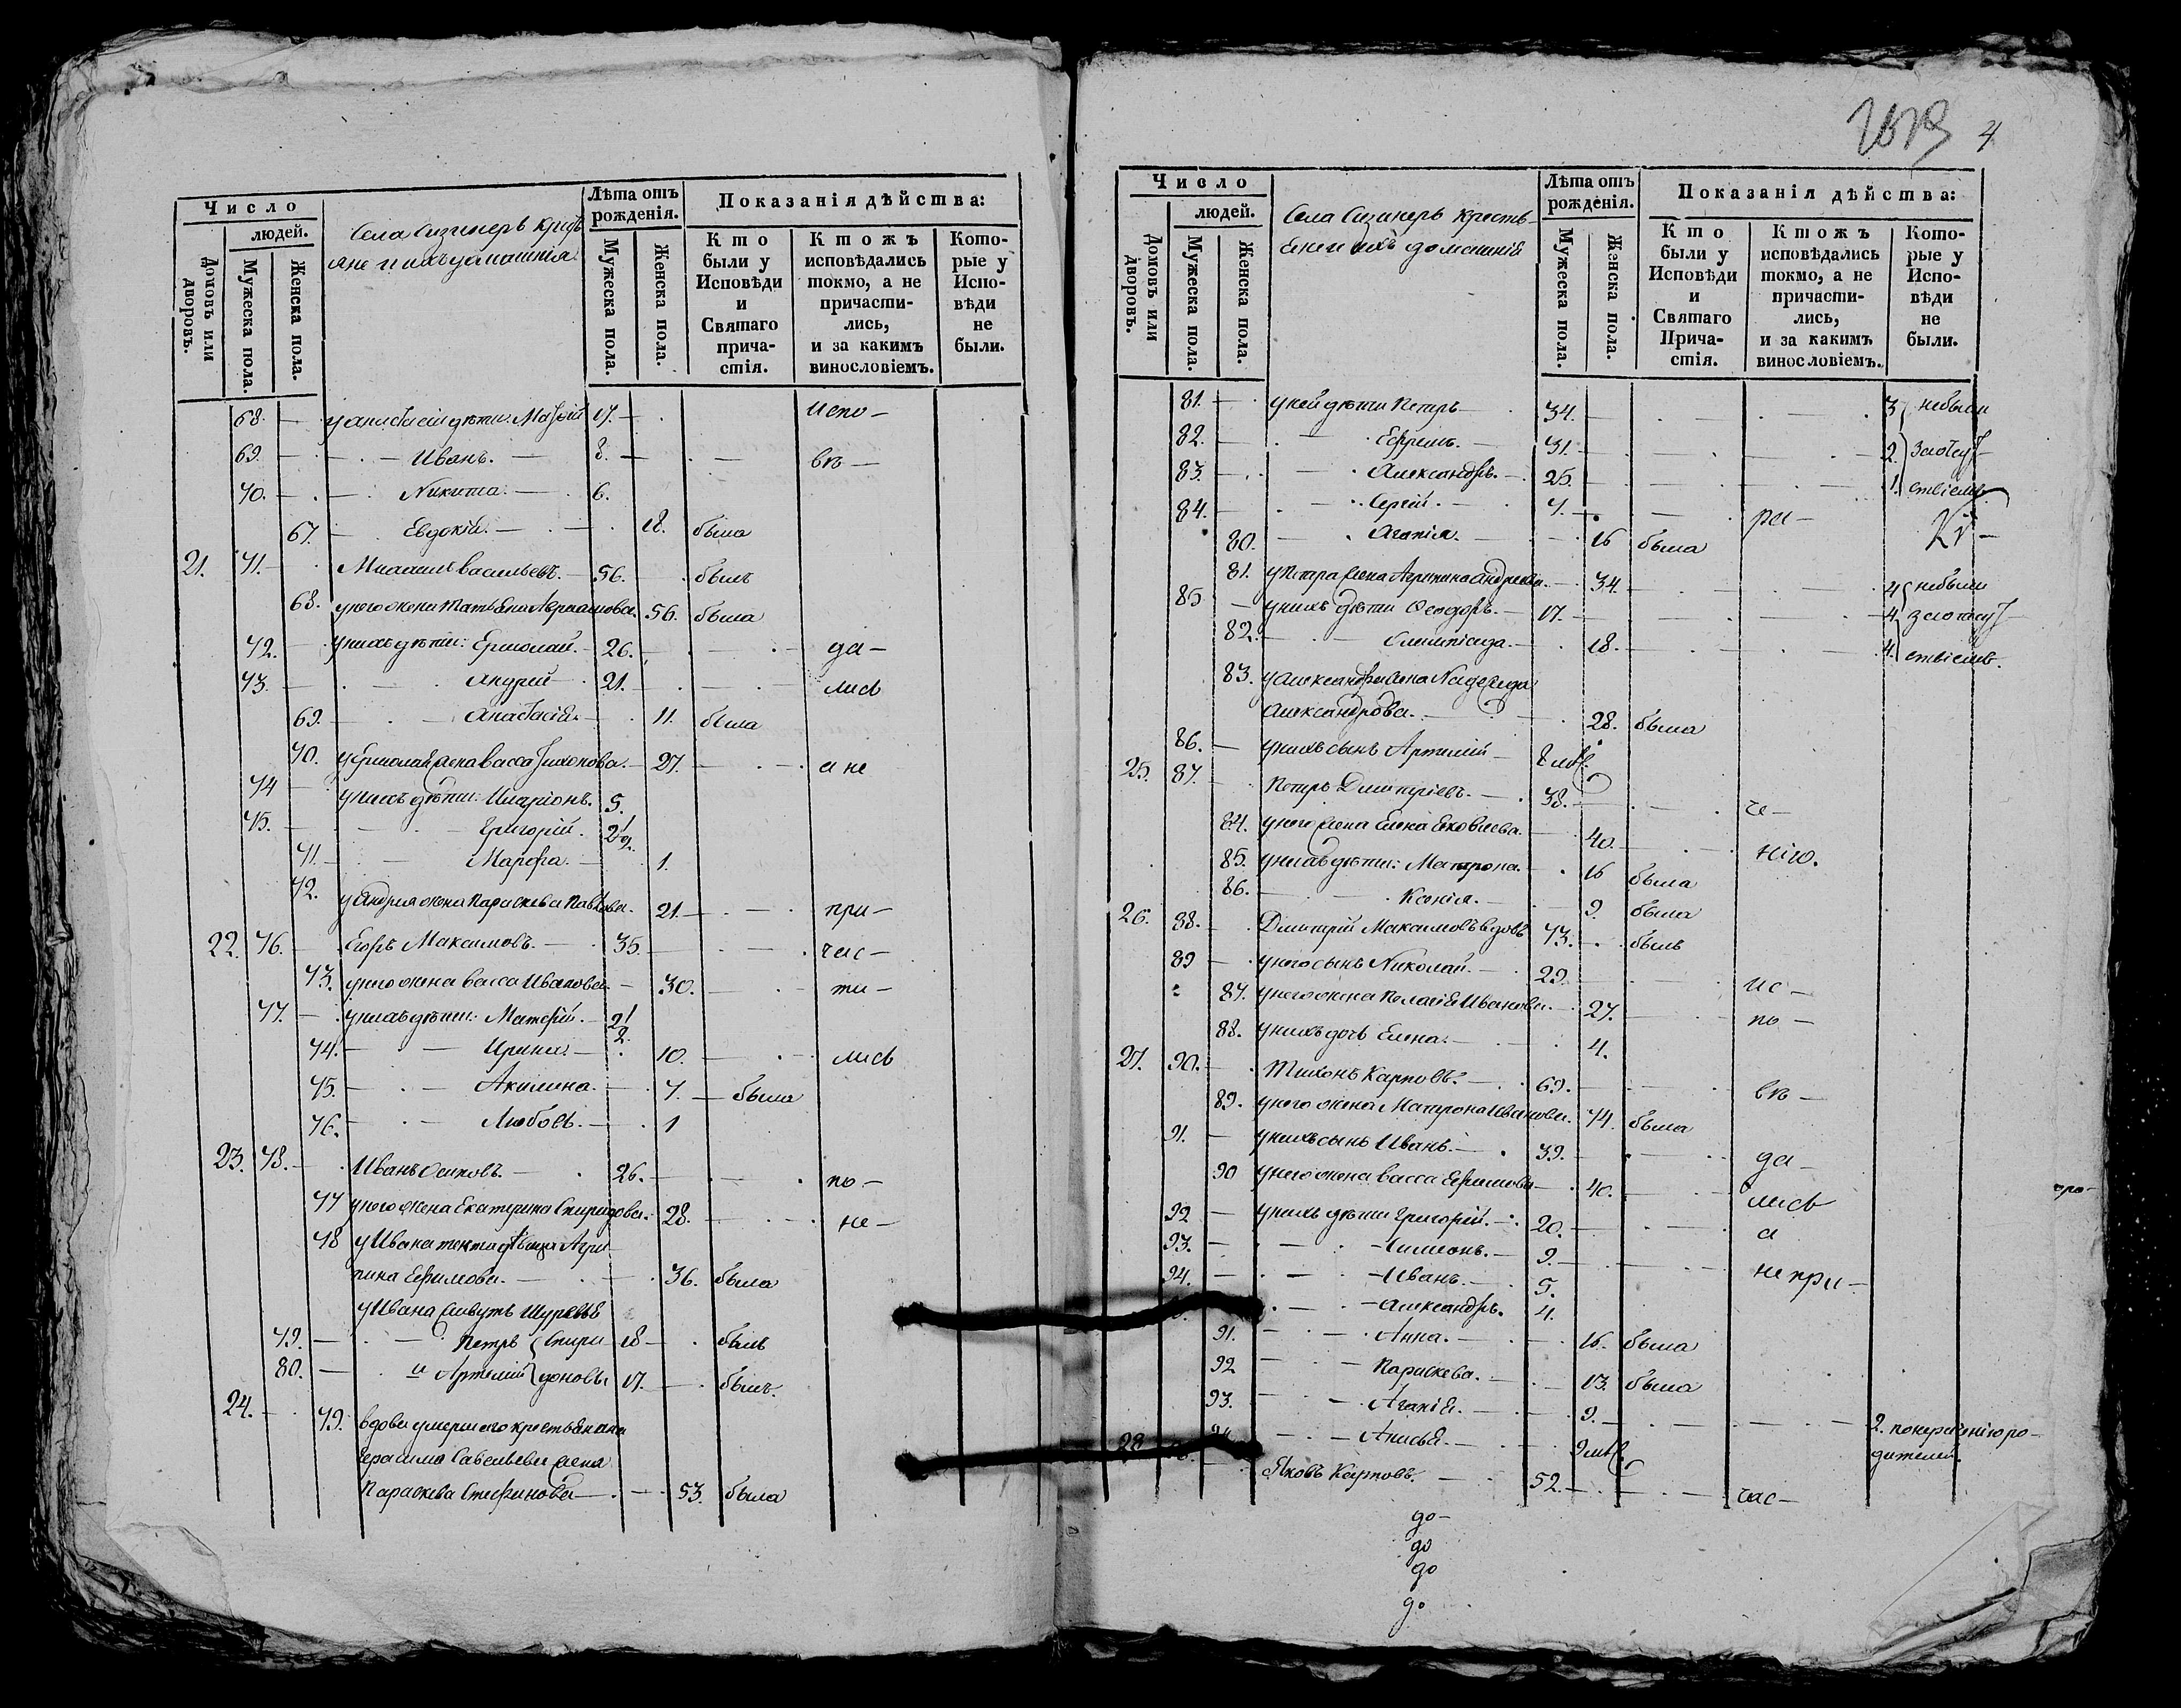 Число
людей.
Домовъ или дворовъ.
Мужеска пола.
Женска пола.
Села Сизинеръ Кресть
яне и ихъ домашнія
Лѣта отъ рожденія.
Мужеска пола.
Женска пола.
Показанія дѣйства:
Кто были у Исповѣди и Святаго причастія.
Ктожъ исповѣдались токмо, а не причастились, и за какимъ винословіемъ.
Которые у Исповѣди не были.
68. у Анастасіи дѣти: 17. испо-
69. Иванъ. 8. вѣ-
70. Никита. 6.
67. Евдокія. 18. была
21. 71. Михаилъ Васильевъ. 56. былъ
68. у него жена Татьяна 56. была
72. у нихъ дѣти: Ермолай. 26. да-
73. Андрей 21. лись
69. Анастасія. 11. была
70. у Ермолая жена Васса Тихонова. 27. а не
74 у нихъ дѣти: Иларіонъ. 5.
75. Григорій. 2 1/2
71. Марфа. 1.
72. у Андрея жена Параскева Павлова. 21. при-
22. 76. Егоръ Максимовъ. 35. час-
73. у него жена Васса Иванова. 30. ти-
77. у нихъ дѣти: Матвѣй. 2 1/2
74. Ирина. 10. лись
75. Акилина. 7. была
76. Любовь. 1
23. 78. Иванъ Осиповъ. 26. по-
77 у него жена Екатерина Спиридова. 28. не-
78 у Ивана Агри-
пина Ефимова. 36. была
у Ивана живутъ Шурьевья
79. Петръ Спири- 18 былъ
80. и Артемій доновы 17. былъ.
24. 79. вдова умершаго крестьянина
Герасима Савельева жена
Параскева Стефанова 53. была
2619 4
Число
людей.
Домовъ или дворовъ.
Мужеска пола.
Женска пола.
Села Сизинеръ Кресть-
яне и ихъ домашнія
Лѣта отъ рожденія.
Мужеска пола.
Женска пола.
Показанія дѣйства:
Кто были у Исповѣди и Святаго Причастія.
Ктожъ исповѣдались токмо, а не причастились, и за какимъ винословіемъ.
Которые у Исповѣди не были.
81. у ней дѣти Петръ 34. 3 небыли
82. Ефремъ. 31. 2. за отсут-
83. Александръ. 25. 1. ствіемъ
84. Сергій. 7. ра-
80. Агапія. 16 была
81. у Петра жена Агрипина Андреева. 34. 4 небыли
85 у нихъ дѣти Ѳеодоръ. 17. 4. за отсут-
82. Олимпіада. 18. 4. ствіемъ.
83. у Александра жена Надежда
Александрова. 28. была
86. у нихъ сынъ Артемій 8 мѣс.
25. 87. Петръ Дмитріевъ. 38. че-
84. у него жена Елена Яковлева. 40. ніго.
85. у нихъ дѣти: Матрона. 16 была
86. Ксенія. 9. была
26. 88. Дмитрій Максимовъ вдовъ 73. былъ
89 у него сынъ Николай. 29. ис-
87. у него жена Пелагія Иванова. 27. по-
88. у нихъ дочь Елена. 4.
27. 90. Тихонъ Карповъ. 69. вѣ-
89. у него жена Матрона Иванова. 74. была
91. у нихъ сынъ Иванъ. 39. да-
90 у него жена Васса Ефимова 40. лись
92 у нихъ дѣти Григорій. 20. а
93. Симеонъ. 9. не при-
94. Иванъ. 5.
Александръ. 4.
91. Анна. 16. была
92 Параскева. 13. была
93. Агапія. 9. 2. по неразумѣнію ро-
94. Анисья. 9 мѣс. дителей.
28 Яковъ Карповъ. 52. час-
до-
до
до
до